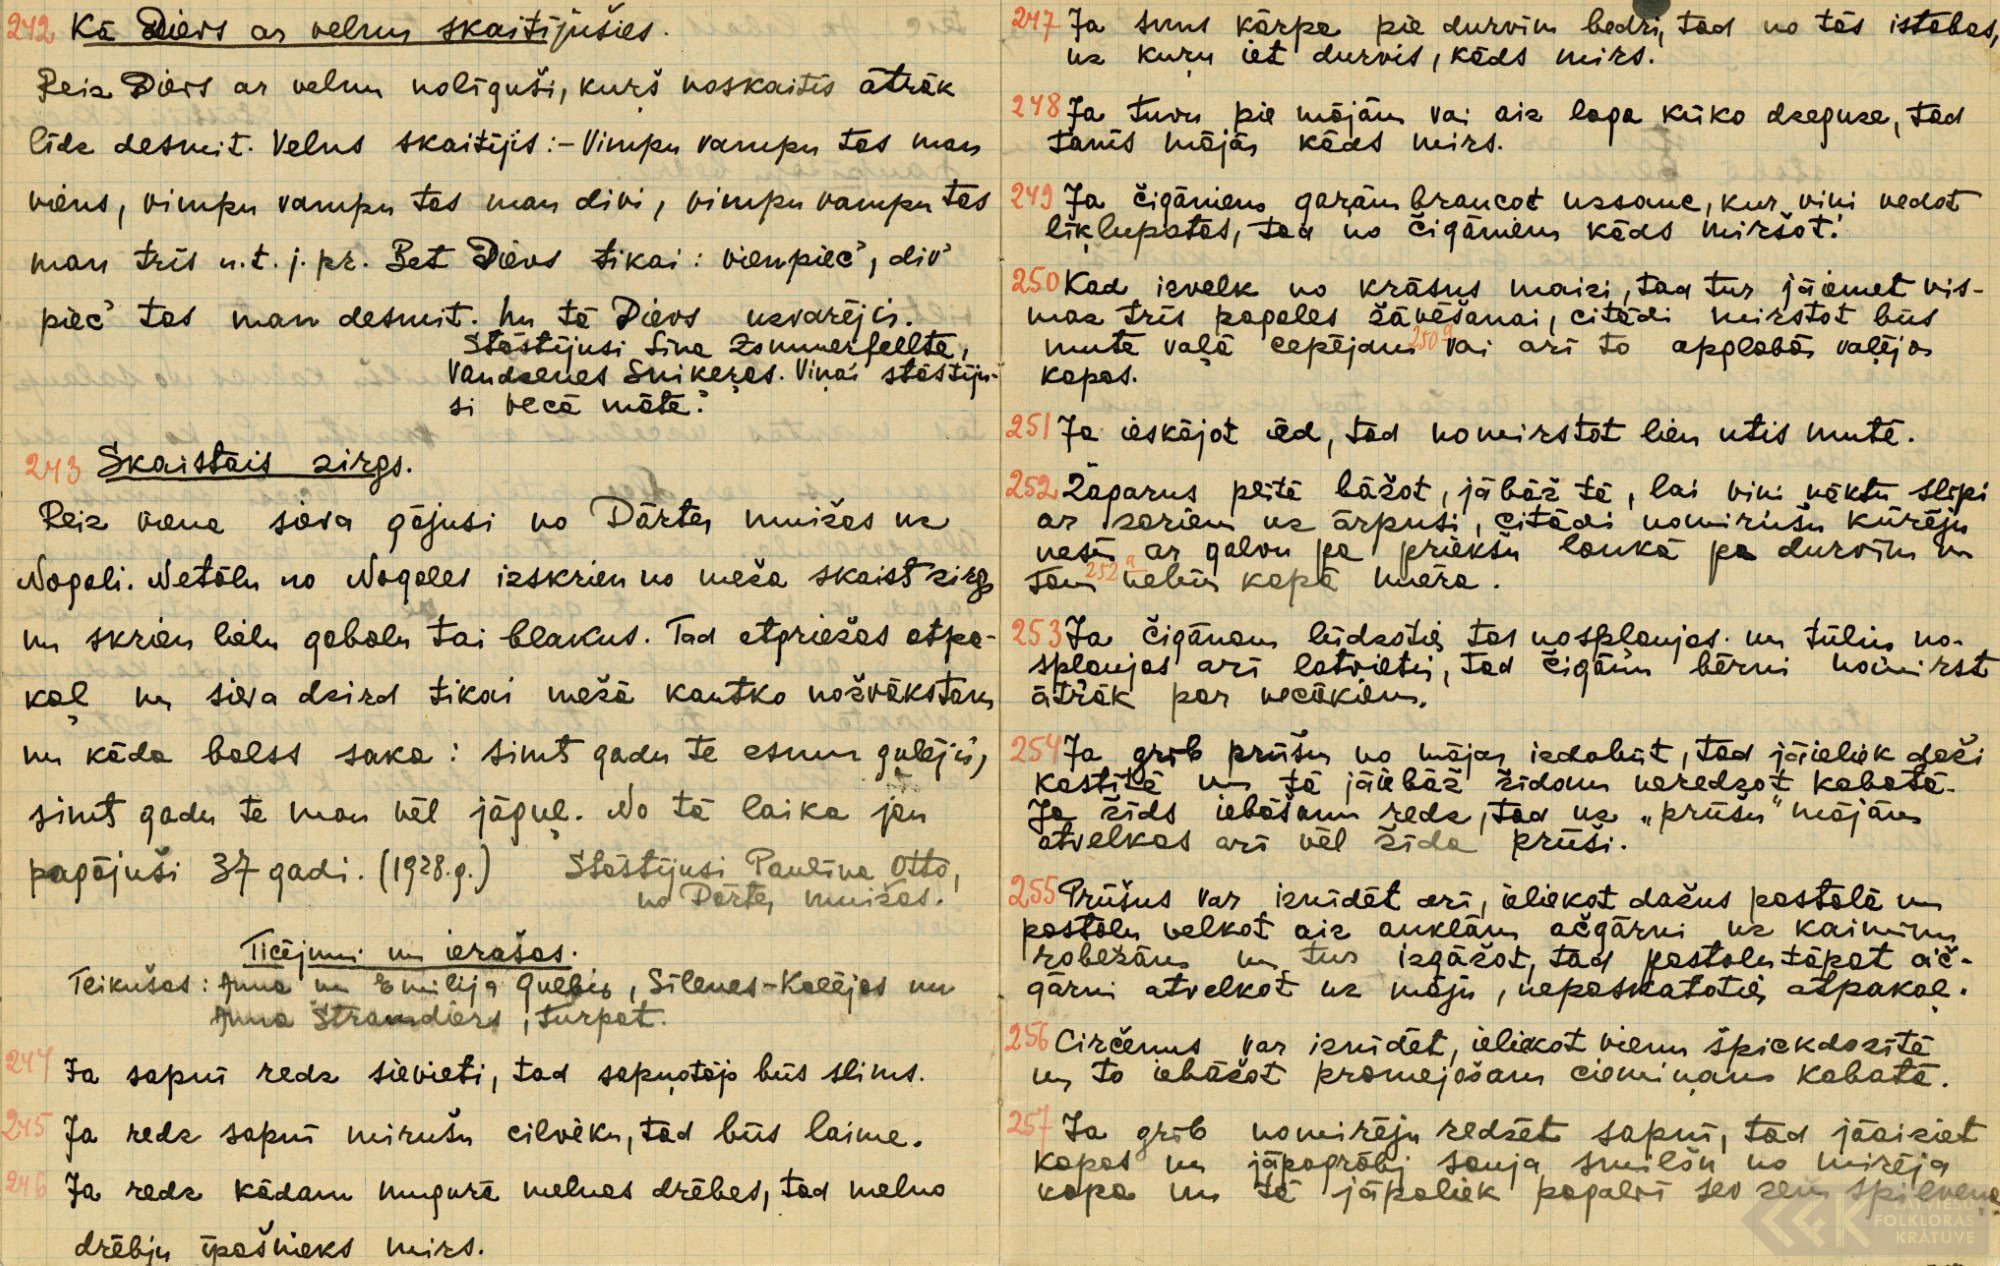 242 Kā Dievs ar velnu skaitījušies.
Reiz Dievs ar velnu nolīguši, kurš noskaitīs ātrāk
līdz desmit. Velns skaitījis: – Vimpu vampu tas man
viens, vimpu vampu tas man divi, vimpu vampu tas
man trīs u.t.j.pr. Bet Dievs tikai: vienpiec', div'
piec' tas man desmit. Un tā Dievs uzvarējis.
Stāstījusi Līna Zommerfeelte,
Vandzenes Sniķeros. Viņai stāstīju-
si vecā māte.
243 Skaistais zirgs.
Reiz viena sieva gājusi no Dārtes muižas uz
Nogali. Netālu no Nogales izskrien no meža skaist zirgs
un skrien lielu gabalu tai blakus. Tad atgriežas atpa-
kaļ un sieva dzird tikai mežā kautko nošvākstam
un kāda balss saka: simt gadu te esmu gulējis,
simt gadu te man vēl jāguļ. No tā laika jau
pagājuši 37 gadi. (1928.g.) Stāstījusi Paulīna Otto,
no Dārtes muižas.
Ticējumi un ierašas.
Teikušas: Anna un Emilija Gulbis, Sīlenes-Kalējos un
Anna Straudiers, turpat.
244 Ja sapnī redz sievieti, tad sapņotājs būs slims.
245 Ja redz sapnī mirušu cilvēku, tad būs laime.
246 Ja redz kādam mugurā melnas drēbes, tad melno
drēbju īpašnieks mirs.
247 Ja suns kārpa pie durvīm bedri, tad no tās istabas,
uz kuru iet durvis, kāds mirs.
248 Ja tuvu pie mājām vai aiz loga kūko dzeguze, tad
tanīs mājās kāds mirs.
249 Ja čigāniem garām braucot uzsauc, kur viņi vedot
līķlupatas, tad no čigāniem kāds miršot.
250 Kad izvelk no krāsns maizi, tad tur jāiemet vis-
maz trīs pagales žāvēšanai, citādi mirstot būs
mute vaļā cepējam 250a vai arī to apglabās vaļējās
kapos.
251 Ja ieskājot ēd, tad nomirstot lien utis mutē.
252 Žagarus plītē bāžot, jābāž tā, lai viņi nāktu slīpi
ar zariem uz ārpusi, citādi nomirušu kūrēju
nesīs ar galvu pa priekšu laukā pa durvīm un
tam 252a nebūs kapā miera.
253 Ja čigānam lūdzoties tas nospļaujas un tūliņ no-
spļaujas arī latvietis, tad čigānu bērni nomirst
ātrāk par vecākiem.
254 Ja grib prūšu no mājas izdabūt, tad jāieliek daži
kastītē un tā jāiebāž žīdam neredzot kabatā.
Ja žīds iebāšanu redz, tad uz „prūšu" mājām
atvelkas arī vēl žīda prūši.
255 Prūšus var iznīdēt arī, ieliekot dažus pastalā un
pastalu velkot aiz auklām ačgārni uz kaimiņu
robežām un tur izgāžot, tad pastalu tāpat ač-
gārni atvelkot uz māju, nepaskatoties atpakaļ.
256 Circeņus var iznīdēt, ieliekot vienu špickdozītē
un to iebāžot promejošam ciemiņam kabatā.
257 Ja grib nomirēju redzēt sapnī, tad jāaiziet
kapos un jāpagrābj sauja smilšu no mirēja
kapa un tā jāpaliek pagalvī sev zem spilvena
LATVIEŠU
FOLKLORAS
KRĀTUVE